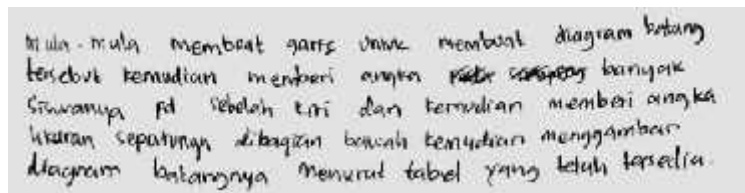 mula-mula membuat garis untuk membuat diagram batang
tersebut kemudian memberi angka banyak
siswanya pd sebelah kiri dan kemudian memberi angka
ukuran sepatunya dibagian bawah kemudian menggambar
diagram batangnya menurut tabel yang telah tersedia.